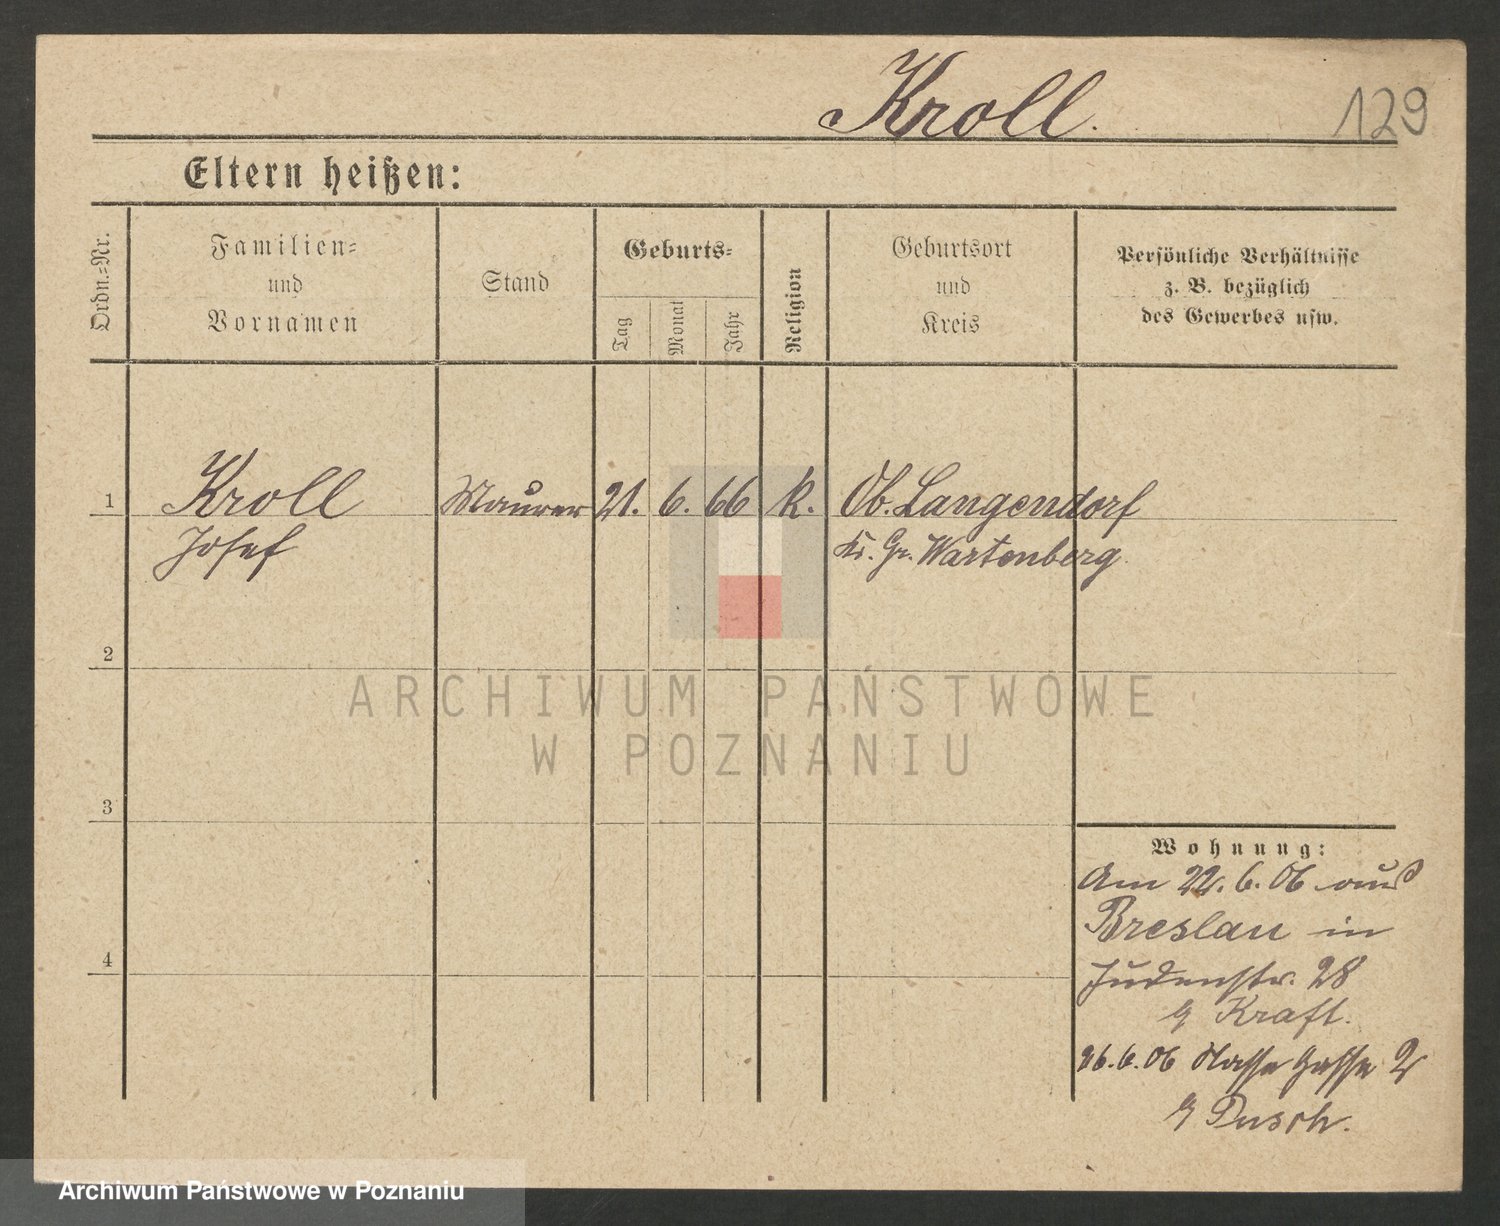 Kroll.
129
Eltern heißen:
Ordn.-Nr.
Familien-
und
Vornamen
Stand
Geburts-
Tag
Monat
Jahr
Religion
Geburtsort
und
Kreis
Persönliche Verhältnisse
z. B. bezüglich
des Gewerbes usw.
1
Kroll
Josef
Maurer
21.
6.
66
k.
Ob. Langendorf
Kr. Gr. Wartenberg
2
3
4
Wohnung:
Am 22. 6. 06 aus
Breslau in
Judenstr. 28
Kraft.
26. 6. 06 Nasse Gasse 2
Dusch.
ARCHIWUM PAŃSTWOWE
W POZNANIU
Archiwum Państwowe w Poznaniu